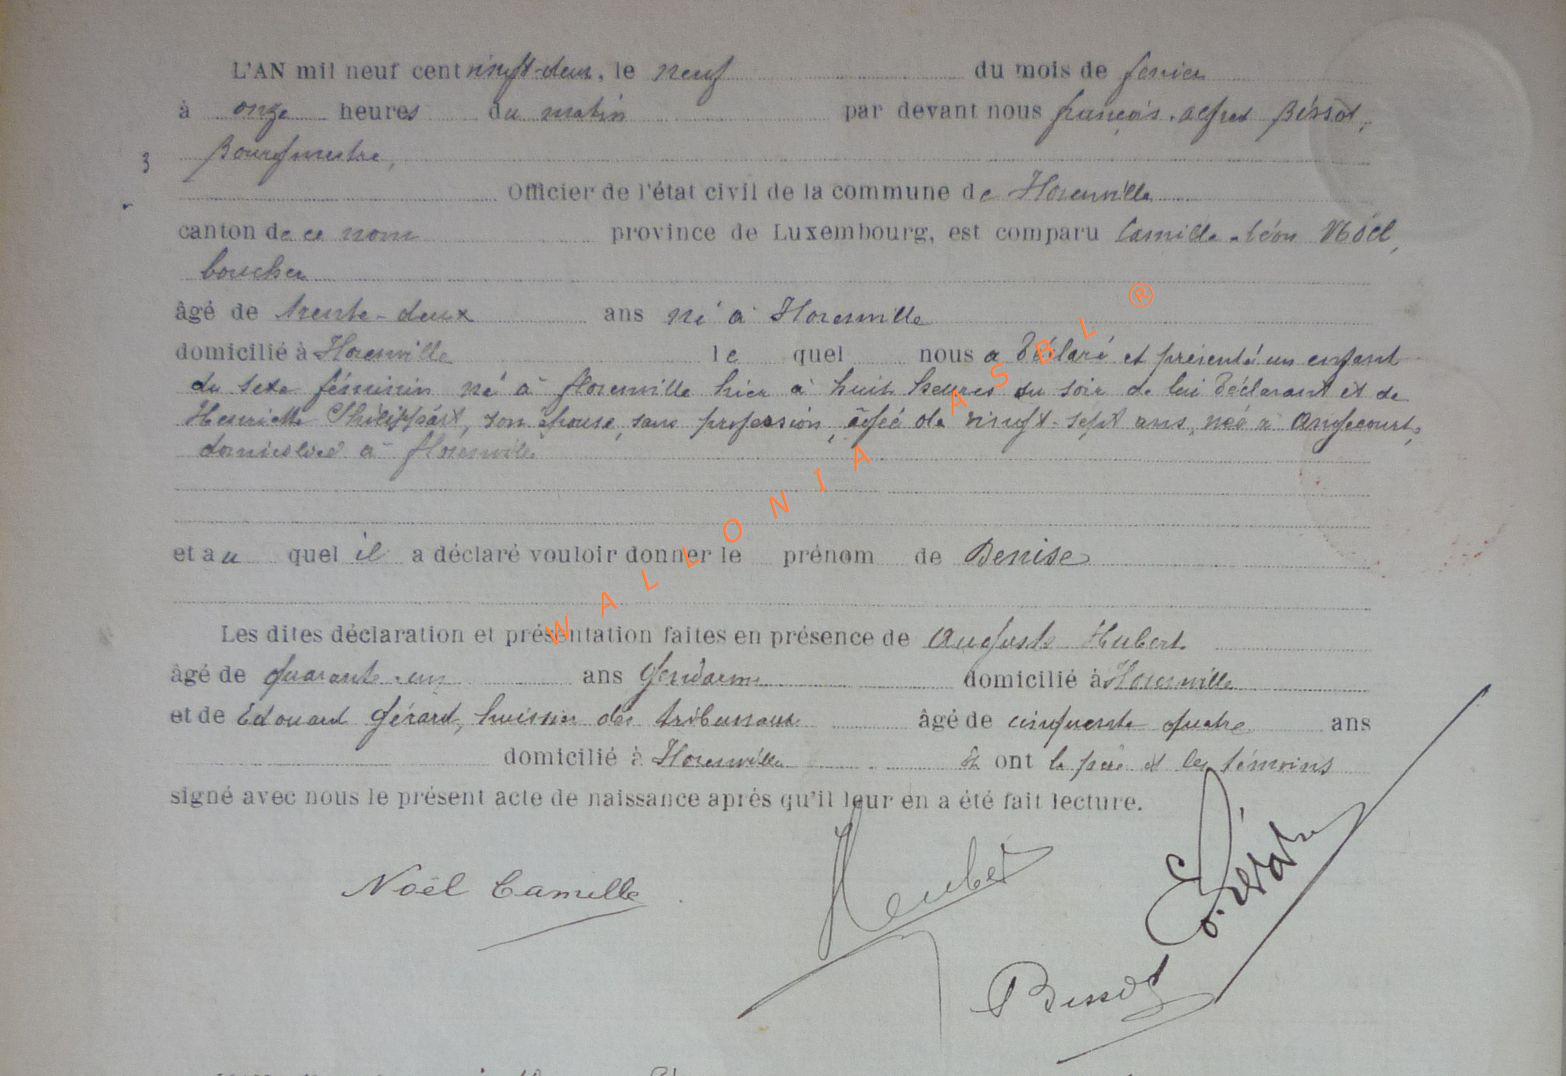 L'AN mil neuf cent vingt-deux, le neuf du mois de février
à onze heures du matin par devant nous françois-alfred Bissot,
3 Bourgmestre,
Officier de l'état civil de la commune de Florenville
canton de ce nom province de Luxembourg, est comparu Camille-Léon Noël,
boucher
âgé de trente-deux ans né à Florenville
domicilié à Florenville le quel nous a déclaré et présenté un enfant
du sexe féminin né à florenville hier à huit heures du soir de lui déclarant et de
Henriette Philippart, son épouse, sans profession, âgée de vingt-sept ans, née à Angecourt,
domiciliée à florenville
et au quel il a déclaré vouloir donner le prénom de Denise
Les dites déclaration et présentation faites en présence de Auguste Hubert
âgé de quarante-un ans gendarme domicilié à Florenville
et de Edouard Gérard, huissier des tribunaux âgé de cinquante quatre ans
domicilié à Florenville & ont le père et les témoins
signé avec nous le présent acte de naissance aprés qu'il leur en a été fait lecture.
Noël Camille
Bissot
WALLONIA ASBL ®